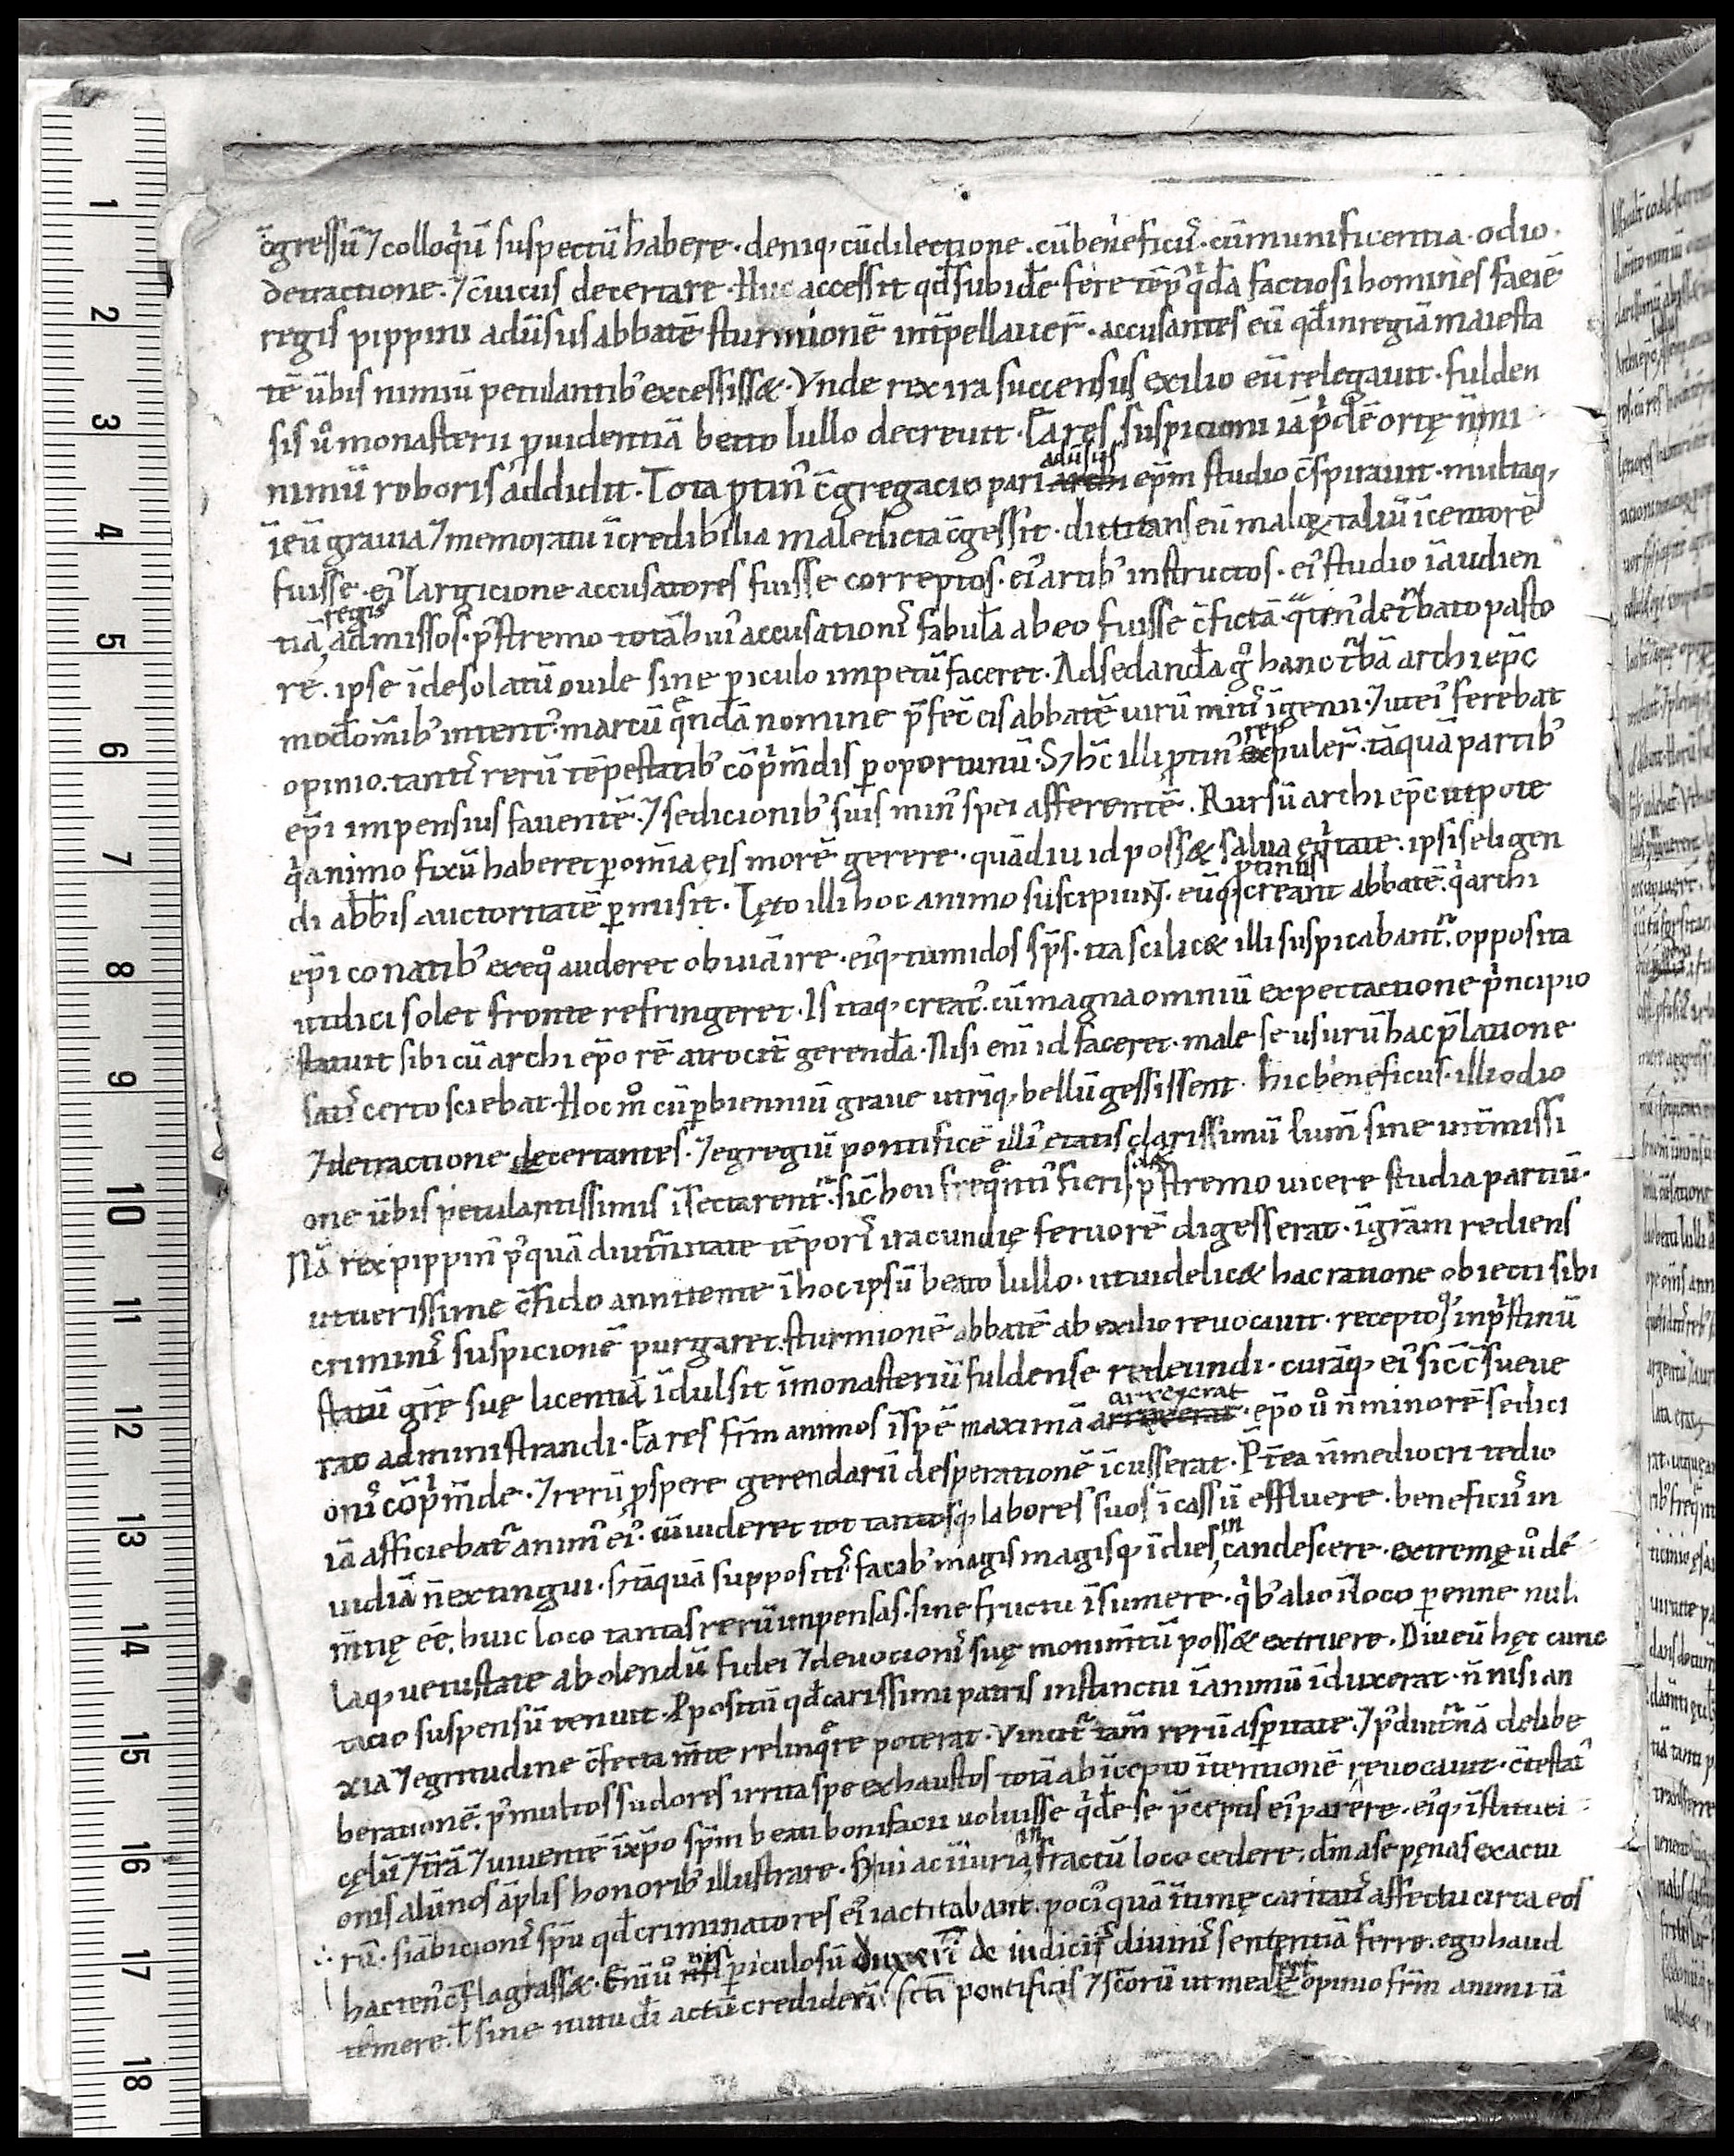 c̄gressū ⁊ colloq̇ūm suspectū habere · deniq; cū dilectione · cū beneficiis · cū munificentia · odio ·
detractione · ⁊ c̄uiciis decertare · Huc accessit qđ sub idē fere tēp⁹ q̇dā factiosi homines faciē
regis pippini adūsus abbatē sturmionē int̄pellauer̄ · accusantes eū qđ in regiā maiesta
tē ūbis nimiū petulantib; excessiss& · Vnde rex ira succensus exilio eū relegauit · fulden
sis u̇ monasterii ꝓuidentiā beato lullo decreuit · Ea res suspicioni iā p̄dē ortę n̄ mi
nimū roboris addidit · Tota ꝓtin⁹ c̄gregacio pari adūsus ep̄m studio c̄spirauit · multaq;
ī eū grauia ⁊ memoratu īcredibilia maledicta c̄gessit · dictitans eū malo& taliū īcentorē
fuisse · ei⁹ largicione accusatores fuisse correptos · ei⁹ artib; instructos · ei⁹ studio ī audien
tiā regis admissos · p⁹stremo totā hui⁹ accusationis fabulā ab eo fuisse c̄fictā · q̇tin⁹ deturbato pasto
re · ipse ī desolatū ouile sine ꝑiculo impetū faceret · Ad sedandā g̊ hanc turbā archiep̄c
mođ om̄ib; intent⁹ · marcū q̇ndā nomine p̄fec̄ eis abbatē uirū mitis īgenii · ⁊ ut ei⁹ ferebat
opinio · tantis rerū tēpestatib; cōp̄m̄dis ꝑoportunū · S; hc̄ illi ꝓtin⁹ repuler̄ · tāquā partib;
ep̄i impensius fauentē · ⁊ sedicionib; suis min⁹ spei afferentē · Rursū archiep̄c utpote
q̇ animo fixū haberet ꝑ om̄ia eis morē gerere · quādiu id poss& salua eq̇tate · ipsis eligen
di abb̄is auctoritatē ꝑmisit · Lęto illi hoc animo suscipiunt · eūq; ꝓtinus creant abbatē · q̇ archi
ep̄i conatib; ex eq̊ auderet obuiā ire · ei⁹q; tumidos sp̄s · ita scilic& illi suspicabant̄ · opposita
ut dici solet fronte refringeret · Is itaq; creat⁹ · cū magna omniū expectatione ṗncipio
statuit sibi cū archiep̄o rē atrocit̄ gerendā · Nisi eni id faceret · male se usurū hac p̄latione
satis certo sciebat · Hoc m̊ cū ꝑ bienniū graue utriq; bellū gessissent · hic beneficiis · illi odio
⁊ detractione decertantes · ⁊ egregiū pontificē illi⁹ etatis clarissimū lum̄ sine int̄missi
one ūbis petulantissimis īsectarent̄ · sic̄ heu freq̊nti⁹ fieri p⁹stremo uicere studia partiū ·
Nā rex pippin⁹ p⁹quā diut̄nitate tēporis iracundię feruorē digesserat · ī gr̄am rediens
ut uerissime c̄fido annitente ī hoc ipsū beato lullo · ut uidelic& hac ratione obiecti sibi
criminis suspicionē purgaret · sturmionē abbatē ab exilio reuocauit · receptoq; in ṗstinū
statū gr̄ę suę licentiā īdulsit ī monasteriū fuldense redeundi · curāq; ei⁹ sic̄ c̄sueue
rat administrandi · Ea res fr̄m animos ī spē maximā arrexerat · ep̄o u̇ n̄ minorē sedici
onis cōp̄m̄de · ⁊ rerū ꝓspere gerendarū desperationē īcusserat · P̄tea n̄ mediocri tedio
iā afficiebat̄ anim⁹ ei⁹ · cū uideret tot tantosq; labores suos ī cassū effluere · beneficiis in
uidiā n̄ extingui · s; tāquā suppositis facib; magis magisq; ī dies incandescere · extremę u̇ de
m̄tię eē · huic loco tantas rerū impensas · sine fructu īsumere · q̇b; alio ī loco ꝑenne nul
laq; uetustate abolendū fidei ⁊ deuocionis suę monim̄tū poss& extruere · Diu eū hęc cunc
tacio suspensū tenuit · Ꝓpositū qđ carissimi patris instinctu ī animū īduxerat · n̄ nisi an
xia ⁊ egritudine c̄fecta m̄te relinq̊re poterat · Vincit̄ tam̄ rerū asperitate · ⁊ p⁹ diut̄nā delibe
berationē · p⁹ multos sudores irrita spe exhaustos totā ab īcepto ītentionē reuocauit · c̄testat⁹
cęlū ⁊ t̄rā ⁊ uiuentē ī xp̄o sp̄m beati bonifacii uoluisse q̇dē se p̄ceptis ei⁹ parere · ei⁹q; īstituci
onis alūnos āplis honorib; illustrare · S; ui ac iniuria fractū loco cedere · d̄m a se pęnas exactu
rū · si ābicionis sp̄u qđ criminatores ei⁹ iactitabant · poci⁹ quā ītimę caritatis affectu circa eos
hacten⁹ c̄flagrass& · Eni u̇ nisi ꝑiculosū duxeri de iudiciis diuinis sententiā ferre · ego haud
temere · ł sine nutu d̄i actū credideri · sc̄i pontificis ⁊ sc̄orū ut mea fert opinio fr̄m animi ita